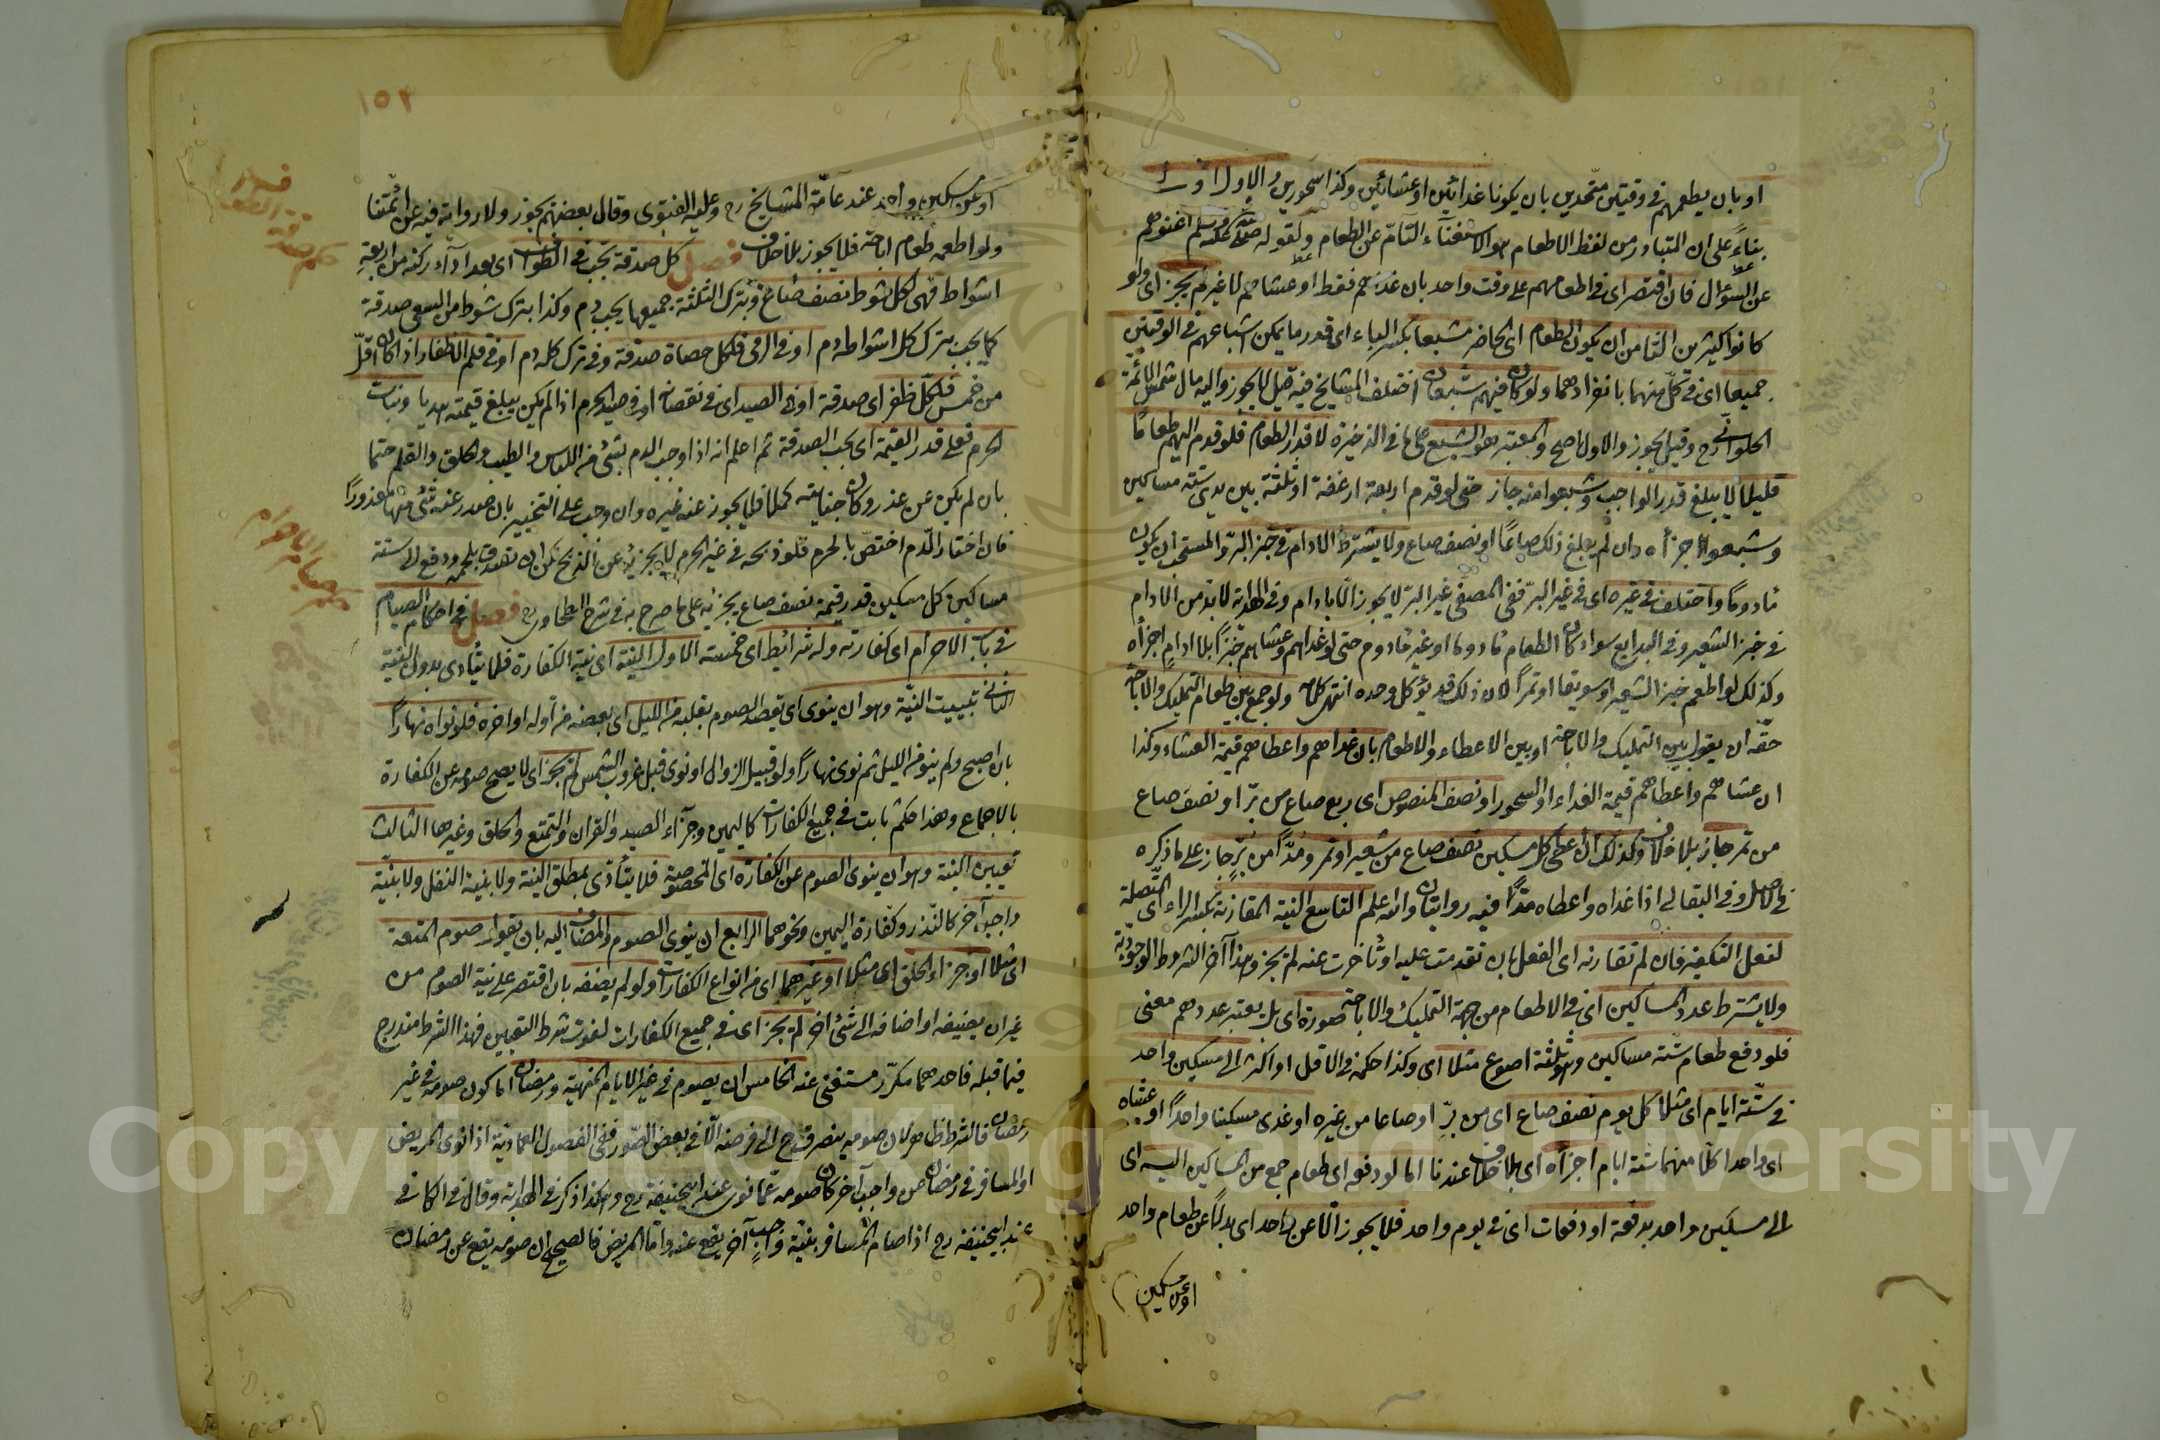 او بان يطعمهم في وقتين متحدين بان يكونا غدائين او عشائين وكذا سحورين والاول اولى
بناءً على ان المتبادر من لفظ الاطعام هو الاستغناء التام عن الطعام ولقوله صلى الله عليه وسلم اغنوهم
عن السؤال فان اقتصر اى في اطعامهم على وقت واحد بان غدّٰهم فقط او عشاهم لا غير لم يجز اى ولو
كانوا كثيرين الثامن ان يكون الطعام اى الحاضر مشبعا بكسر الباء اى قدر ما يمكن اشباعهم في الوقتين
جميعا اى في كل منهما بانفرادهما ولو كان فيهم شبعان اختلف المشايخ فيه قيل لا يجوز واليه مال شمس الائمة
الحلوانى رح وقيل يجوز والاول اصح والمعتبر هو الشبع كما في الذخيرة لا قدر الطعام فلو قدم اليهم طعامًا
قليلا لا يبلغ قدر الواجب وشبعوا منه جاز حتى لو قدم اربعة ارغفة او ثلثة بين يدى ستة مساكين
وشبعوا اجزأه وان لم يبلغ ذلك صاعًا او نصف صاع ولا يشترط الادام في خبز البرّ والمستحب ان يكون
مأدومًا واختلف في غيره اى في غير البرّ ففى المصفى غير البرّ لا يجوز الا بادام وفى الهداية لا بد من الادام
في خبز الشعير وفى البدايع سواء كان الطعام مأدوما او غير مأدوم حتى لو غداهم وعشاهم خبزًا بلا ادامٍ اجزأه
وكذلك لو اطعم خبز الشعير او سويقا او تمرًا لان ذلك قد يؤكل وحده انتهى كلامه ولو جمع بين طعام التمليك والاباحة
حقه ان يقول بين التمليك والاباحة او بين الاعطاء والاطعام بان غداهم واعطاهم قيمة العشاء وكذا
ان عشاهم واعطاهم قيمة الغداء او السحور او نصف المنصوص اى ربع صاع من برّ او نصف صاع
من تمر جاز بلا خلاف وكذلك ان اعطى كل مسكين نصف صاع من شعير او تمر ومدًّا من برٍّ جاز على ما ذكره
في الاصل وفى البقالى اذا غداه واعطاه مدًّا فيه روايتان والله اعلم التاسع النية المقارنة بكسر الراء اى المتصلة
لفعل التكفير فان لم تقارنه اى الفعل بان تقدمت عليه او تأخرت عنه لم يجز وهذا آخر الشروط الوجودية
ولا يشترط عدد المساكين اى في الاطعام من جهة التمليك والاباحة صورة اى بل يعتبر عددهم معنى
فلو دفع طعام ستة مساكين وهو ثلثة اصوع مثلا اى وكذا حكمه في الاقل او اكثر الى مسكين واحد
في ستّة ايام اى مثلا كل يوم نصف صاع اى من برٍّ او صاعا من غيره او غدى مسكينا واحدًا او عشاه
اى واحدا كلا منهما ستة ايام اجزأه اى بلا خلاف عندنا اما لو دفعه اى طعام جمع من المساكين اليه اى
الى مسكين واحد بدفعة او دفعات اى في يوم واحد فلا يجوز الا عن واحد اى بدلًا عن طعام واحد
او عن مسكين
١٥٢
او عن مسكين واحد عند عامّة المشايخ رح وعليه الفتوى وقال بعضهم يجوز ولا رواية فيه عن ائمتنا
ولو اطعمه طعام اباحة فلا يجوز بلا خلاف فصل كل صدقة تجب في الطواف اى بعد اداء ركنه من اربعة
اشواط فهى لكل شوط نصف صاع وبترك الثلثة جميعها يجب دم وكذا بترك شوط من السعى صدقة
كما يجب بترك كل اشواطه دم او في الرمى فلكل حصاة صدقة وفى ترك كله دم او في قلم الاظفار اذا كان اقلّ
من خمس فلكلّ ظفر اى صدقة او في الصيد اى في نقصانه او في صيد الحرم اذا لم يكن يبلغ قيمته هديا ونبات
الحرم فعلى قدر القيمة اى يجب الصدقة ثم اعلم انه اذا وجب الدم بشئ من اللبس والطيب والحلق والقلم حتما
بان لم يكن عن عذر وكان جنايته كملا فلا يجوز عنه غيره وان وجب على التخيير بان صدر عنه شئ منها معذورًا
فان اختار الدم اختصّ بالحرم فلو ذبحه في غير الحرم لا يجزيه عن الذبح لكن ان تصدق بلحمه ودفع الى ستة
مساكين كل مسكين قدر قيمة نصف صاع يجزيه على ما صرح به في شرح الطحاوى رح فصل في احكام الصيام
في باب الاحرام اى كفارته وله شرائط اى خمسة الاول النية اى نية الكفارة فلا يتأدى بدون النية
الثانى تبييت النيّة وهو ان ينوى اى يقصد الصوم بقلبه من الليل اى بعضه من أوله او اخره فلو نواه نهارًا
بان اصبح ولم ينو من الليل ثم نوى نهارًا ولو قبيل الزوال او نوى قبل غروب الشمس لم يجز اى لا يصح صومه عن الكفارة
بالاجماع وهذا حكم ثابت في جميع الكفارات كاليمين وجزآء الصيد والقران والتمتع والحلق وغيرها الثالث
تعيين النية وهو ان ينوى الصوم عن الكفارة اى المخصوصة فلا يتأدى بمطلق النية ولا بنية النفل ولا بنيّة
واجب آخر كالنذر وكفارة اليمين ونحوهما الرابع ان ينوى الصوم والمضاف اليه بان يقول صوم المتعة
اى مثلا او جزاء الحلق اى مثلا او غيرهما اى من انواع الكفارات ولو لم يضفه بان اقتصر على نية الصوم من
غير ان يضيفه او اضافه الى شئ آخر لم يجز اى في جميع الكفارات لفوت شرط التعيين فهذا الشرط مندرج
فيما قبله فاحدهما مكرّر مستغنى عنه الخامس ان يصوم في غير الايام المنهية ورمضان اما كون صومه في غير
رمضان فالشرط ظاهر لان صومه ينصرف الى فرضه الا في بعض الصور ففى الفصول العمادية اذا نوى المريض
او المسافر في رمضان عن واجب آخر كان صومه عما نوى عند ابي حنيفة رح وهكذا ذكر في الهداية وقال في الكافى
عند ابي حنيفة رح اذا صام المسافر بنيّة واجب آخر يقع عنه واما المريض فالصحيح ان صومه يقع عن رمضان
Copyright © King Saud University